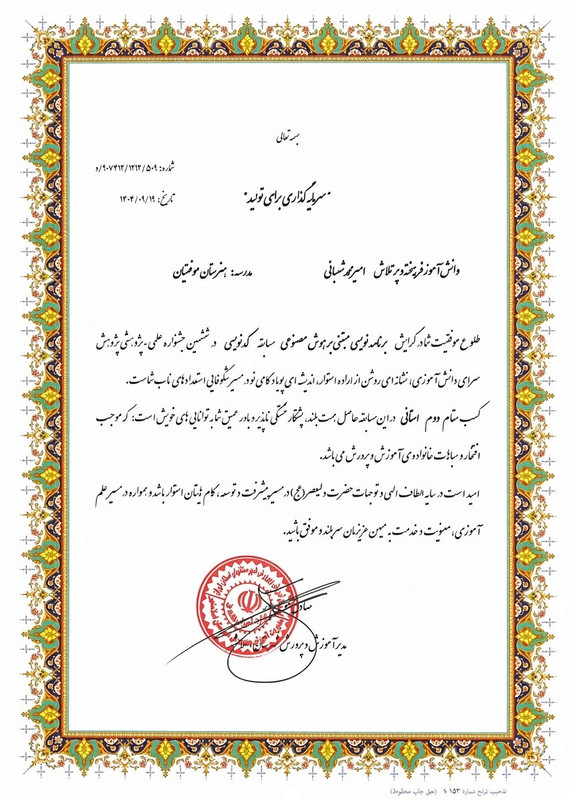 بسمه تعالی
شماره: ۹۰۷۴۱۲/۱۲۱۲/۵۰۹/د
تاریخ: ۱۴۰۴/۰۹/۱۹
"سرمایه گذاری برای تولید"
دانش آموز فرهیخته و پر تلاش امیرمحمد شعبانی مدرسه: هنرستان موفقیتیان
طلوع موفقیت شما در گرایش برنامه نویسی مبتنی بر هوش مصنوعی مسابقه کدنویسی در ششمین جشنواره علمی-پژوهشی پژوهش
سرای دانش آموزی، نشانه ای روشن از اراده استوار، اندیشه ای پویا و گامی نو در مسیر شکوفایی استعدادهای ناب شماست.
کسب مقام دوم استانی در این مسابقه حاصل همت بلند، پشتکار خستگی ناپذیر و باور عمیق شما به توانایی های خویش است؛ که موجب
افتخار و مباهات خانواده ی آموزش و پرورش می باشد.
امید است در سایه الطاف الهی و توجهات حضرت ولیعصر(عج) در مسیر پیشرفت و توسعه، گام هایتان استوار باشد و همواره در مسیر علم
آموزی، معنویت و خدمت به میهن عزیزمان سربلند و موفق باشید.
مدیر آموزش و پرورش
تذهیب ترنج شماره ۱۵۳ ۹ (حق چاپ محفوظ)